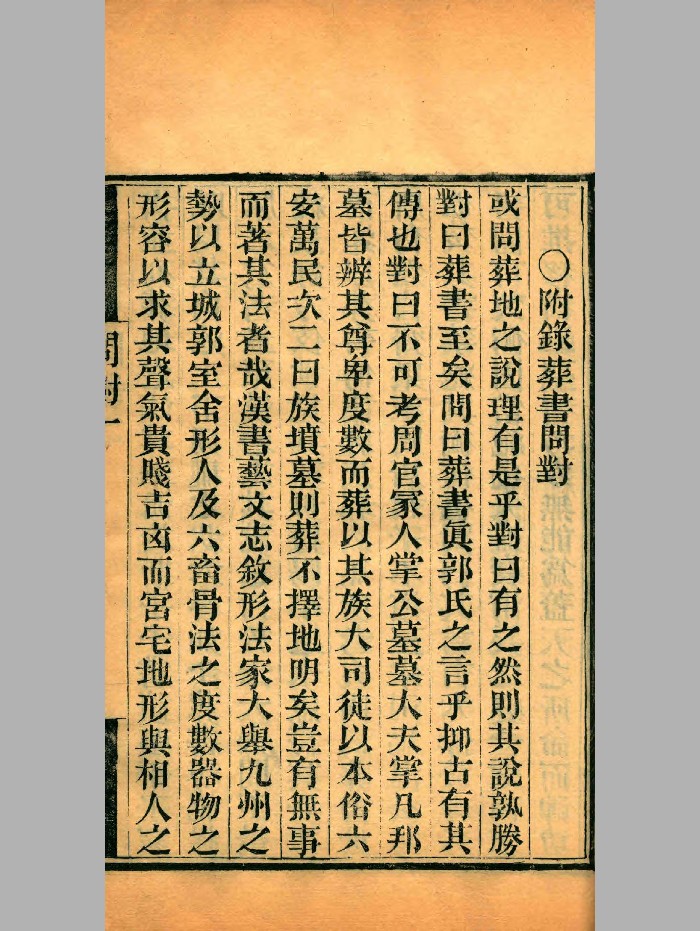 〇附錄葬書問對
或問葬地之說理有是乎對曰有之然則其說孰勝
對曰葬書至矣問曰葬書眞郭氏之言乎抑古有其
傳也對曰不可考周官冢人掌公墓墓大夫掌凡邦
墓皆辨其尊卑度數而葬以其族大司徒以本俗六
安萬民次二曰族墳墓則葬不擇地明矣豈有無事
而著其法者哉漢書藝文志敘形法家大舉九州之
勢以立城郭室舍形人及六畜骨法之度數器物之
形容以求其聲氣貴賤吉凶而宮宅地形與相人之
問對一